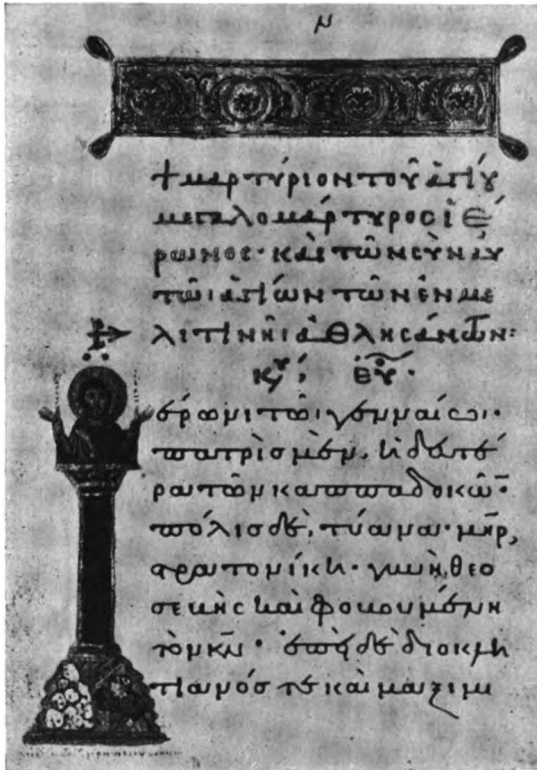 μ
+ μαρτύριον τοῦ ἁγίου
μεγαλομάρτυρος ἱέ
ρωνος· καὶ τῶν σὺν αὐ
τῶι ἁγίων τῶν ἐν με
λιτινῆι ἀθλησάντων:
έρωνι τῶι γενναίωι·
πατρὶς μὲν, ἡ δευτέ
ρα τῶν καππαδοκῶν·
πόλις δὲ, τύανα· μηρ,
στρατονίκη· γυνὴ θεο
σεβὴς καὶ φοβουμένη
τὸν κν· ἐπεὶ δὲ διοκλη
τιανός τε καὶ μαξιμι